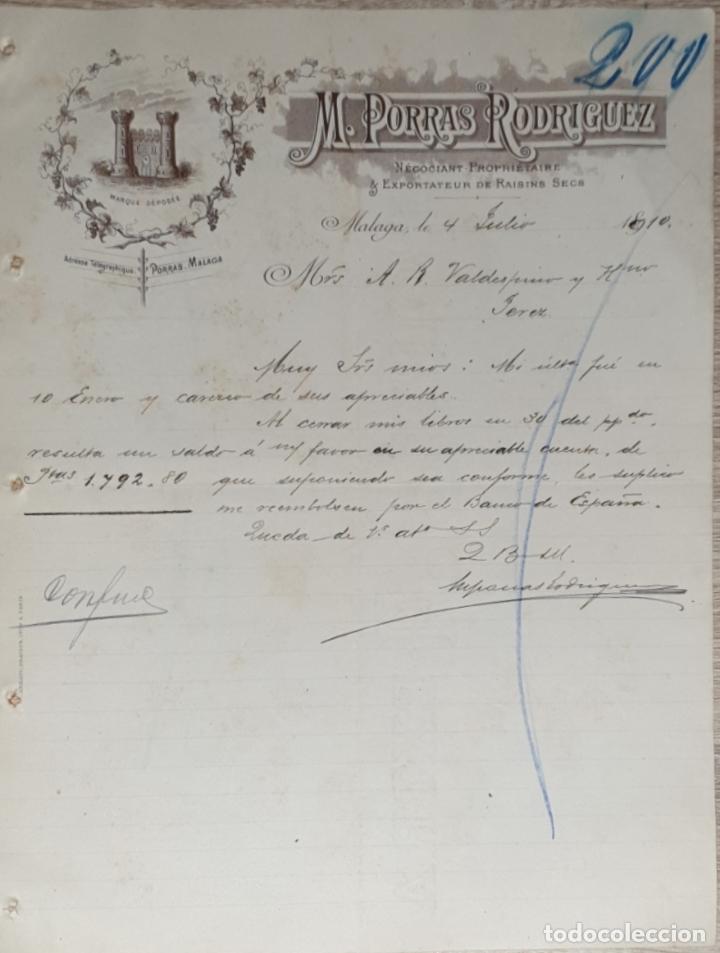 200
M. PORRAS RODRIGUEZ
NÉGOCIANT-PROPRIÉTAIRE
& EXPORTATEUR DE RAISINS SECS
MARQUE DÉPOSÉE
Adresse Télégraphique: PORRAS-MALAGA
Malaga, le 4 Julio 1910.
Mrs A. R. Valdespino y Hno
Jerez
Muy Srs mios: Mi ulta fué en
10 Enero y carezco de sus apreciables.
Al cerrar mis libros en 30 del ppdo,
resulta un saldo á my favor en su apreciable cuenta, de
Ptas 1.792.80 que suponiendo sea conforme, les suplico
me reembolsen por el Banco de España.
Queda de Vs. atto SS
Q B SM
MPorrasRodriguez
Conforme
todocoleccion